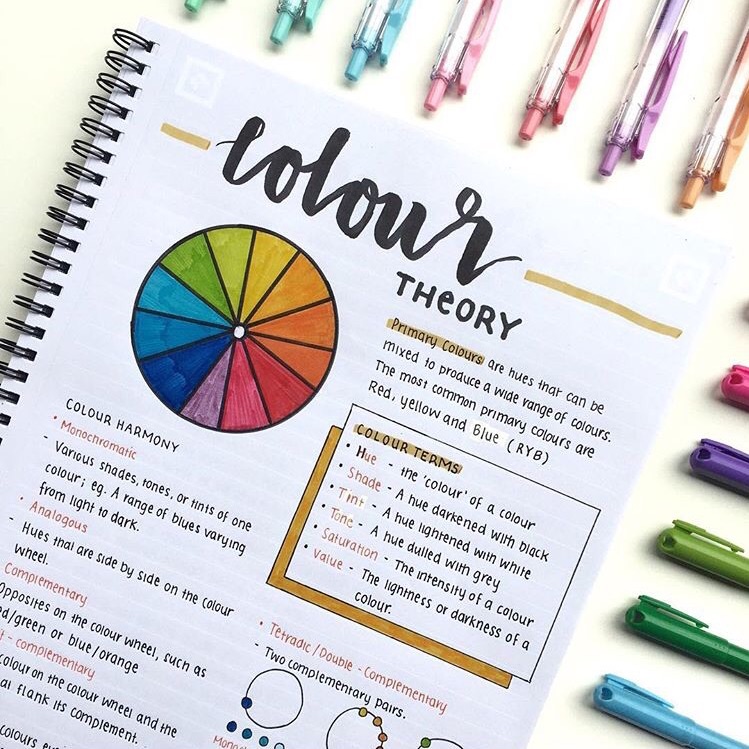 colour
THEORY
Primary Colours are hues that can be
mixed to produce a wide range of colours.
The most common primary colours are
Red, yellow and Blue (RYB)
COLOUR TERMS
• Hue - the 'colour' of a colour
• Shade - A hue darkened with black
• Tint - A hue lightened with white
• Tone - A hue dulled with grey
• Saturation - The intensity of a colour
• Value - The lightness or darkness of a
colour.
COLOUR HARMONY
• Monochromatic
- Various shades, tones, or tints of one
colour; eg. A range of blues varying
from light to dark.
• Analogous
- Hues that are side by side on the colour
wheel.
Complementary
Opposites on the colour wheel, such as
red/green or blue/orange
- complementary
colour on the colour wheel and the
flank its complement.
colours
• Tetradic/Double - Complementary
- Two complementary pairs.